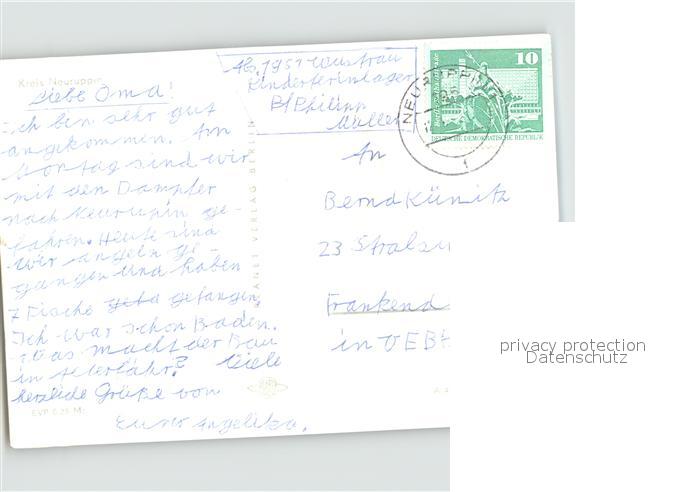 Kreis Neuruppin
Liebe Oma!
ich bin sehr gut
angekommen. Am
Montag sind wir
mit den Dampfer
nach Neurupin ge-
fahren. Heute sind
wir angeln ge-
gangen und haben
7 Fische gefangen,
Ich war schon Baden.
Was macht der Bau
in Viele
herzliche Grüße von
Eurer Angelika.
EVP 0,25 M
PLANET VERLAG BERLIN
1951 Wustrau
Kinderferienlager
B/Philipp
Müller
10
DEUTSCHE DEMOKRATISCHE REPUBLIK
NEURUPPIN
1
An
Bernd Künitz
23 Stralsu
Frankend
in VEB
privacy protection
Datenschutz